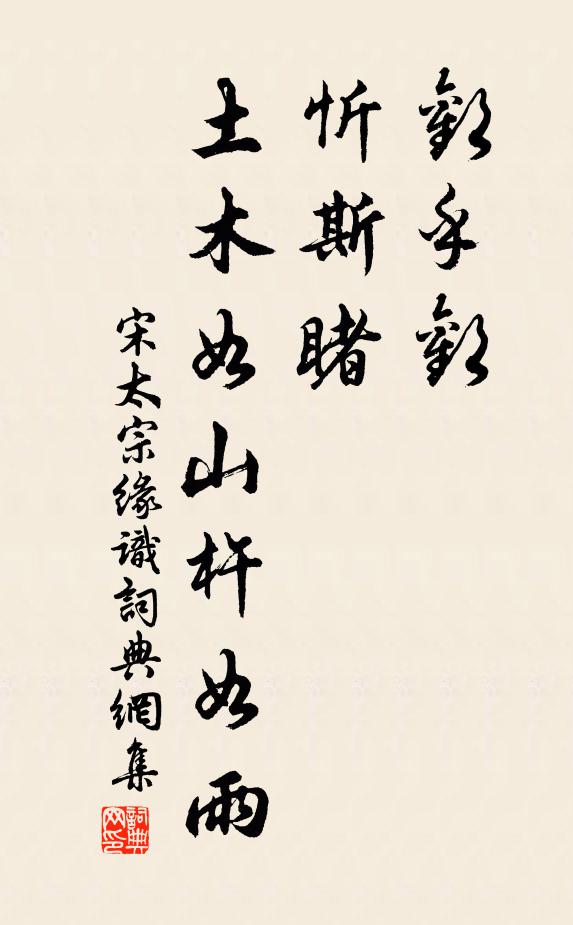 歡乎歡
忻斯睹
土木如山杵如雨
宋太宗緣識詞典網集
詞典
网印